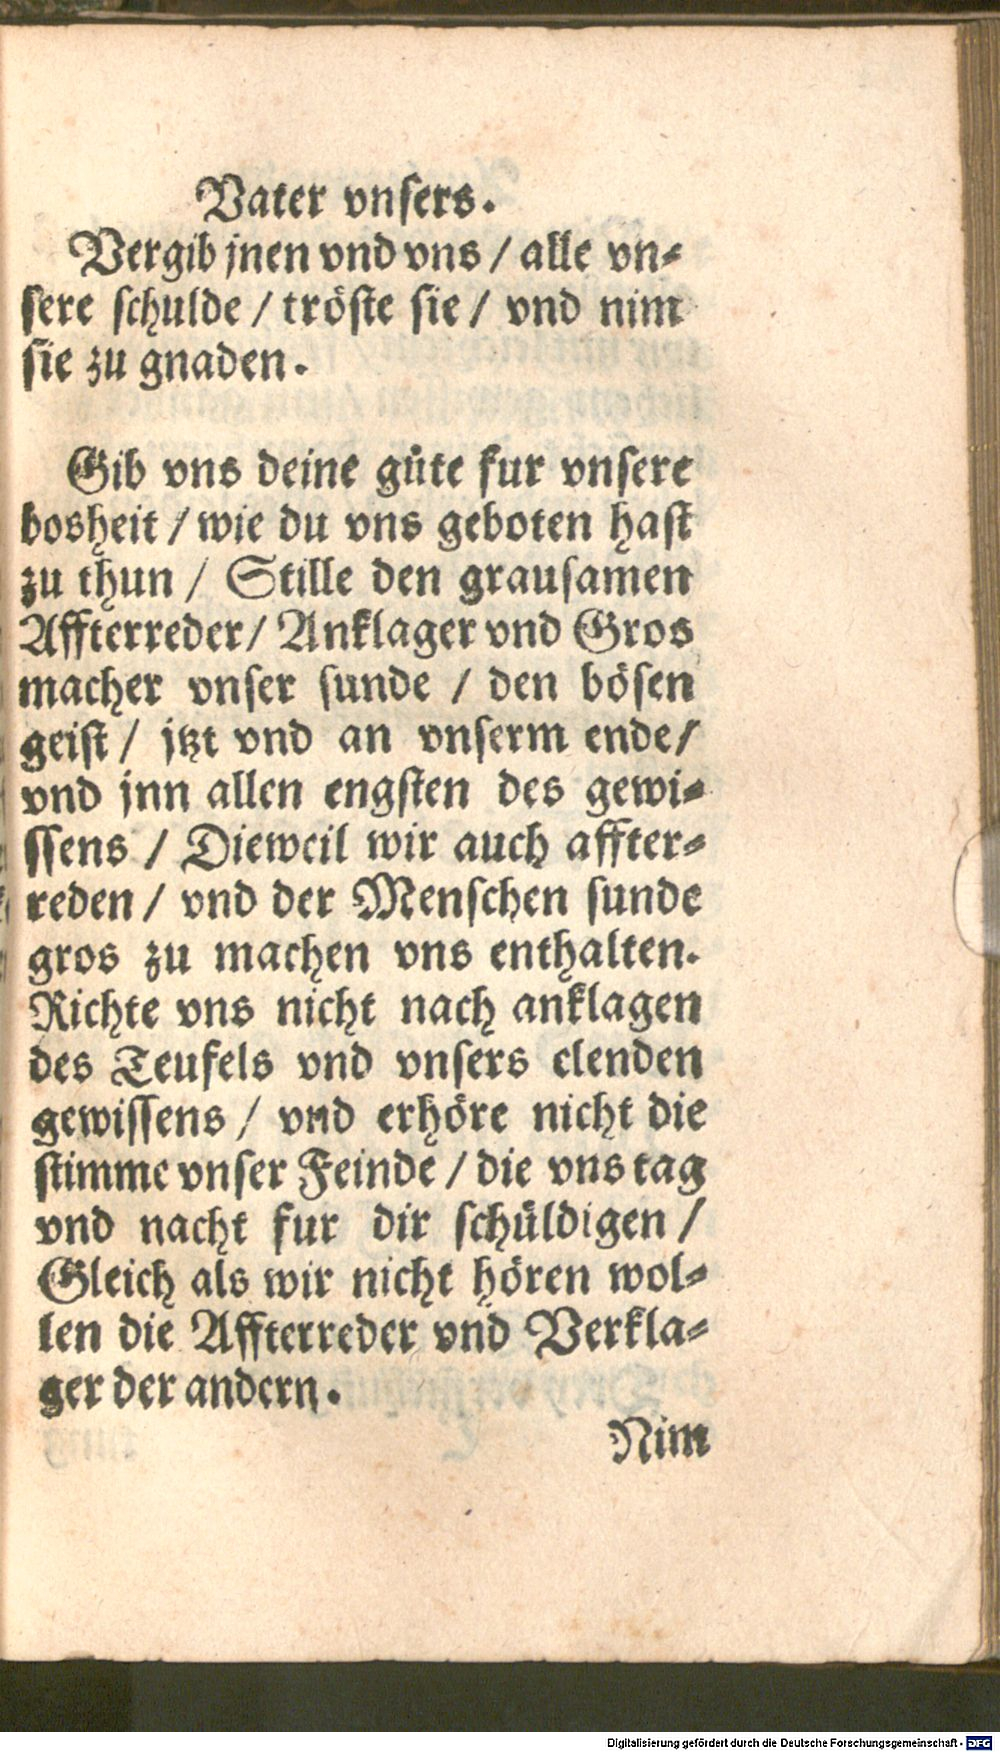 Vater vnsers.
Vergib jnen vnd vns / alle vn⸗
sere schulde / tröste sie / vnd nim
sie zu gnaden.
Gib vns deine güte fur vnsere
bosheit / wie du vns geboten hast
zu thun / Stille den grausamen
Affterreder / Anklager vnd Gros
macher vnser sunde / den bösen
geist / jtzt vnd an vnserm ende /
vnd jnn allen engsten des gewi⸗
ssens / Dieweil wir auch affter⸗
reden / vnd der Menschen sunde
gros zu machen vns enthalten.
Richte vns nicht nach anklagen
des Teufels vnd vnsers elenden
gewissens / vnd erhöre nicht die
stimme vnser Feinde / die vns tag
vnd nacht fur dir schüldigen /
Gleich als wir nicht hören wol⸗
len die Affterreder vnd Verkla⸗
ger der andern.
Nim
Digitalisierung gefördert durch die Deutsche Forschungsgemeinschaft - DFG